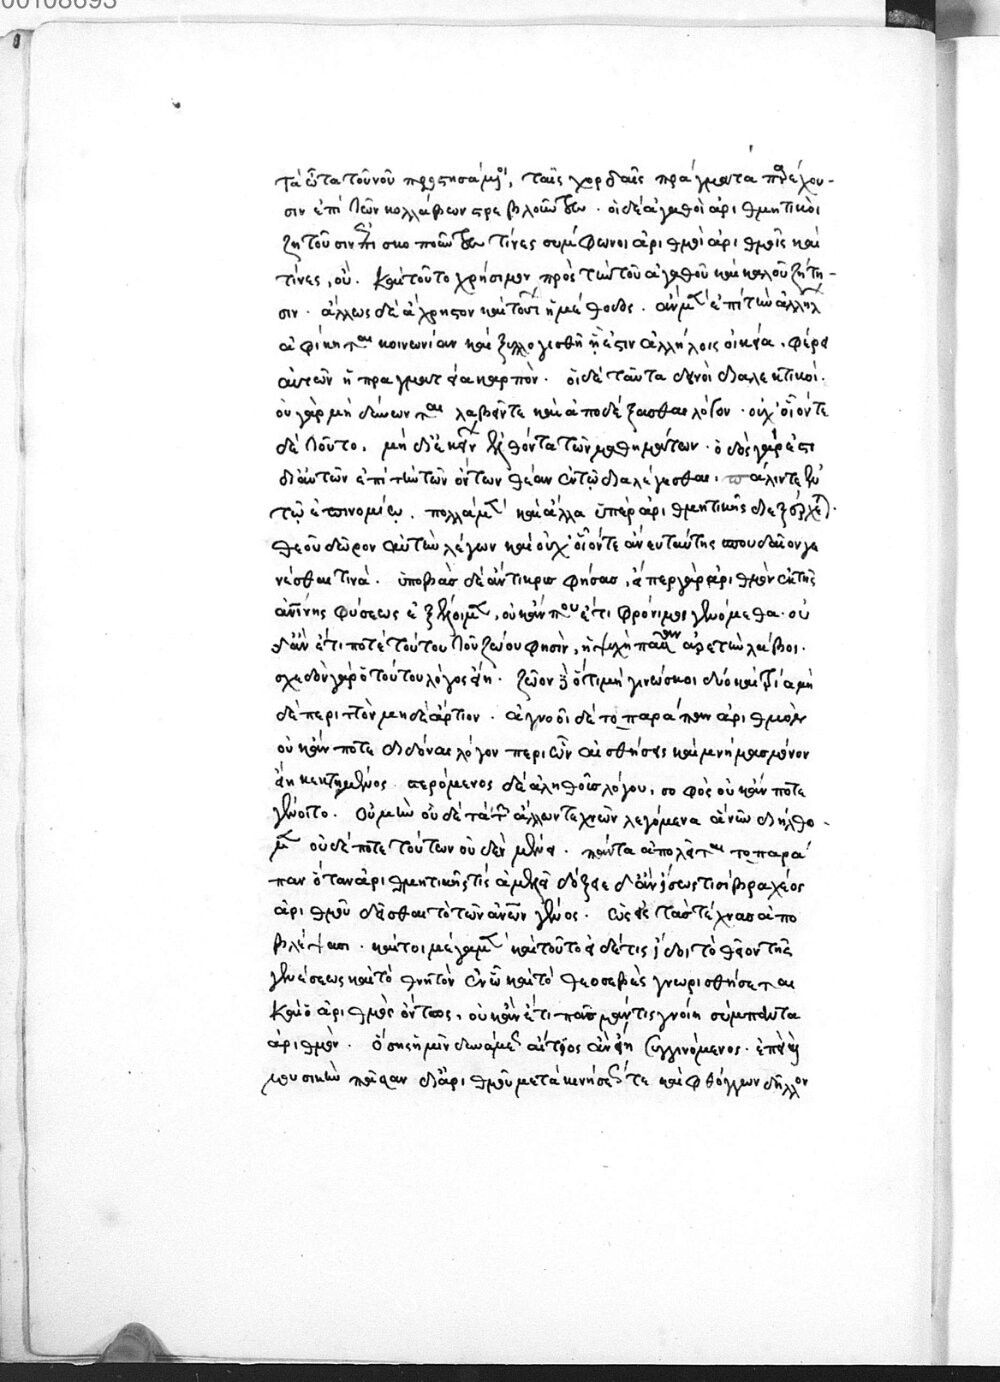 00108693
τὰ ὦτα τοῦ νοῦ προστησάμενοι, ταῖς χορδαῖς πράγματα παρέχου-
σιν ἐπὶ τῶν κολλάβων στρεβλοῦντες. οἱ δὲ ἀγαθοὶ ἀριθμητικοὶ
ζητοῦσιν ἐπισκοποῦντες τίνες σύμφωνοι ἀριθμοὶ ἀριθμοῖς καὶ
τίνες, οὔ. καὶ τοῦτο χρήσιμον πρὸς τὴν τοῦ ἀγαθοῦ καὶ καλοῦ ζήτη-
σιν. ἄλλως δὲ ἄχρηστον καὶ τούτων ἡ μέθοδος. ἂν μὲν ἐπὶ τὴν ἀλλήλων
ἀφίκηται κοινωνίαν καὶ ξυλλογισθῇ ᾗ ἐστιν ἀλλήλοις οἰκεῖα, φέρει
αὐτῶν ἡ πραγματεία καρπόν. οἱ δὲ ταῦτα δεινοὶ διαλεκτικοί.
οὐ γὰρ μὴ δύνωνται λαβεῖν τε καὶ ἀποδέξασθαι λόγον. οὐχ' οἷόν τε
δὲ τοῦτο, μὴ δι' ἐκείνων ἐλθόντα τῶν μαθημάτων. ὁδὸς γάρ ἐστι
δι' αὐτῶν ἐπὶ τὴν τῶν ὄντων θέαν ἐν τῷ διαλέγεσθαι. πάλιν τε ἐν
τῷ ἐπινομίῳ. πολλὰ μὲν καὶ ἄλλα ὑπὲρ ἀριθμητικῆς διεξέρχεται.
θεοῦ δῶρον αὐτὴν λέγων καὶ οὐχ' οἷόν τε ἄνευ ταύτης σπουδαῖον γε
νέσθαι τινά. ὑποβὰς δὲ ἄντικρις φησὶν, εἴπερ γὰρ ἀριθμὸν ἐκ τῆς
ἀνθρωπίνης φύσεως ἐξέλοιμεν, οὐκ ἄν που ἔτι φρόνιμοι γενόμεθα. οὐ
δ' ἂν ἔτι ποτὲ τούτου τοῦ ζώου φησὶν, ἡ ψυχὴ πᾶσαν ἀρετὴν λάβοι.
σχεδὸν γὰρ ὁ τούτου λόγος εἴη. ζῶον δὲ ὅτι μὴ γινώσκοι δύο καὶ τρία μὴ
δὲ περιττὸν μηδὲ ἄρτιον. ἀγνοοῖ δὲ τὸ παράπαν ἀριθμόν
οὐκ ἄν ποτε διδόναι λόγον περὶ ὧν αἰσθήσεις καὶ μνήμας μόνον
εἴη κεκτημένος. στερόμενος δὲ ἀληθοῦς λόγου, σοφὸς οὐκ ἄν ποτε
γένοιτο. οὐ μὴν οὐδὲ τὰ τῶν ἄλλων τεχνῶν λεγόμενα ἃ νῦν διήλθο-
μεν οὐδέποτε τούτων οὐδὲν μενεῖ. πάντα ἀπολεῖται τὸ παρά
παν ὅταν ἀριθμητικῆς τὶς ἀμελῇ δόξειε δ' ἂν ἴσως τισὶ βραχέος
ἀριθμοῦ δεῖσθαι τὸ τῶν ἀνθρώπων γένος. ὡς εἰς τὰς τέχνας ἀπο
βλέψασι. καίτοι μέγα μὲν καὶ τοῦτο εἰ δέ τις ἴδοι τὸ θεῖον τῆς
γενέσεως καὶ τὸ θνητὸν ἐν ᾧ καὶ τὸ θεοσεβὲς γνωρισθήσεται
καὶ ὁ ἀριθμὸς ὄντως, οὐκ ἂν ἔτι πᾶς μάντις γνοίη σύμπαντα
ἀριθμὸν. ὅσης ἡμῖν δυνάμεως αἴτιος ἂν εἴη συγγινόμενος. ἐπεὶ καὶ
μουσικὴν πᾶσαν δι' ἀριθμοῦ μετὰ κινήσεώς τε καὶ φθόγγων δῆλον